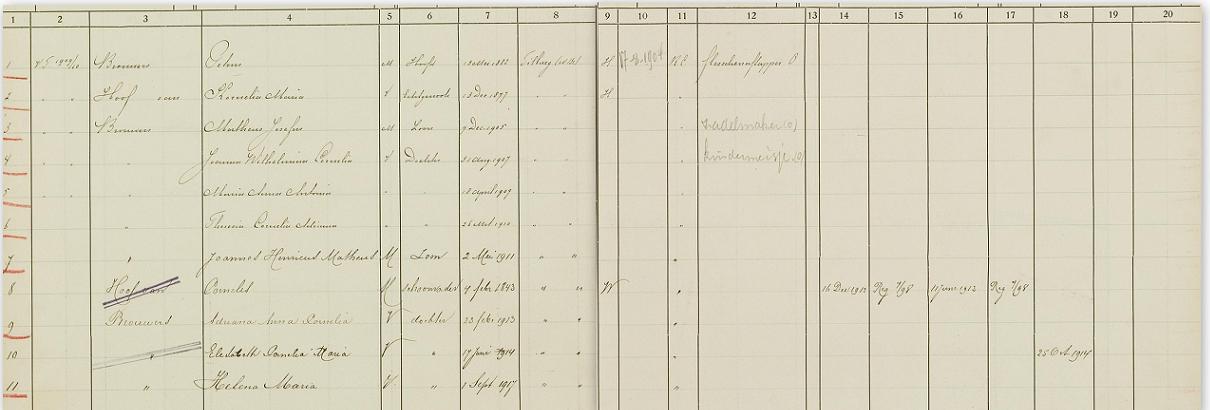 1 2 3 4 5 6 7 8 9 10 11 12 13 14 15 16 17 18 19 20
1 Brouwers Petrus M Hoofd 1882 Tilburg H 17-8-1904 RC flesschenstopper O
2 " " Hoof van Kornelia Maria V Echtgenoote 15 Dec 1877 " " H "
3 " " Brouwers Matheus Josefus M Zoon 9 Dec 1905 " " " zadelmaker (o)
4 " " " Joanna Wilhelmina Cornelia V Dochter Aug 1907 " " " kindermeisje
5 " " " Maria Anna Antonia " " 18 April 1909 " " "
6 " Theresia Cornelia Adriana " " 1910 " " "
7 " Joannes Henricus Matheus M Zoon 2 Mei 1911 " " "
8 Hoof van Cornelis M schoonvader 4 febr. 1843 " " W " 16 Dec 1912 Reg 7/98 11 Juni 1913 Reg 7/98
9 Brouwers Adriana Anna Cornelia V dochter 23 febr 1913 " " "
10 " Elisabeth Cornelia Maria V " 17 Juni 1914 " " " 25 Oct. 1914
11 " Helena Maria V. " 1 Sept 1917 " " "